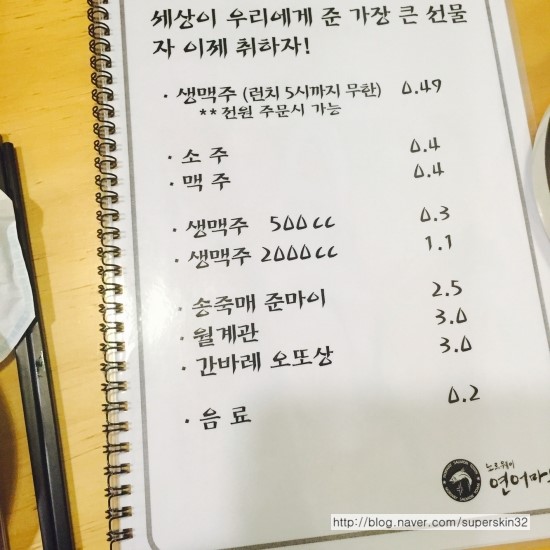 세상이 우리에게 준 가장 큰 선물
자 이제 취하자!
· 생맥주 (런치 5시까지 무한) 0.49
** 전원 주문시 가능
· 소 주 0.4
· 맥 주 0.4
· 생맥주 500cc 0.3
· 생맥주 2000cc 1.1
· 송죽매 준마이 2.5
· 월계관 3.0
· 간바레 오또상 3.0
· 음 료 0.2
노르웨이
http://blog.naver.com/superskin32